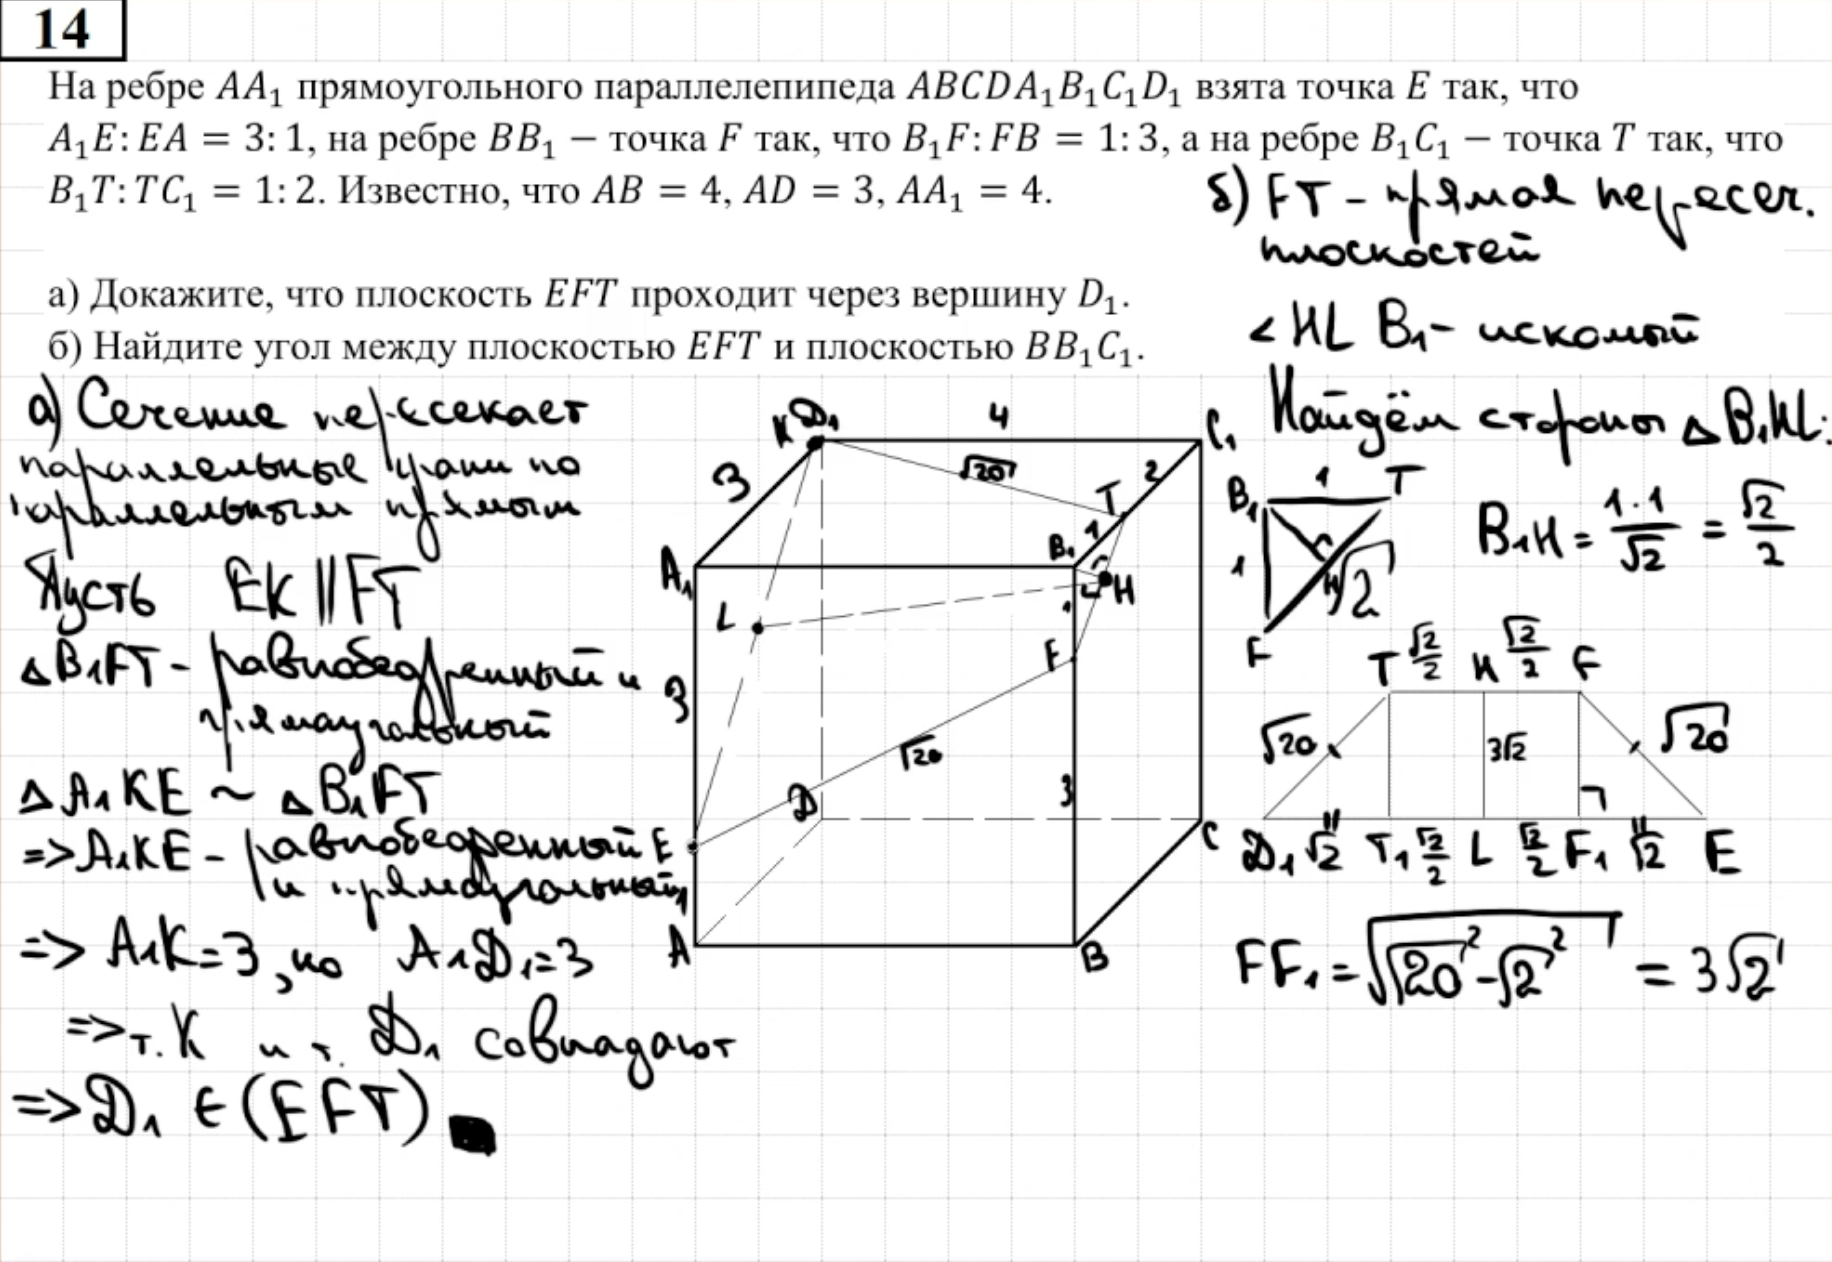 14
На ребре AA₁ прямоугольного параллелепипеда ABCDA₁B₁C₁D₁ взята точка E так, что
A₁E: EA = 3: 1, на ребре BB₁ − точка F так, что B₁F: FB = 1: 3, а на ребре B₁C₁ − точка T так, что
B₁T: TC₁ = 1: 2. Известно, что AB = 4, AD = 3, AA₁ = 4.
а) Докажите, что плоскость EFT проходит через вершину D₁.
б) Найдите угол между плоскостью EFT и плоскостью BB₁C₁.
а) Сечение пересекает
параллельные грани по
параллельным прямым
Пусть EK || FT
△B₁FT - равнобедренный и
прямоугольный
△A₁KE ~ △B₁FT
=> A₁KE - равнобедренный
и прямоугольный
=> A₁K=3, но A₁D₁=3
=> т. K и т. D₁ совпадают
=> D₁ ∈ (EFT)
K D₁ 4 C₁
3 √20 2
T
1
A₁ B₁
L 1 H
3 F
√20
D 3
E C
1
A B
б) FT - прямая пересеч.
плоскостей
∠HLB₁ - искомый
Найдём стороны △B₁HL:
B₁ 1 T
1 H √2
F
B₁H = 1·1/√2 = √2/2
T √2/2 H √2/2 F
√20 3√2 √20
D₁ √2 T₁ √2/2 L √2/2 F₁ √2 E
FF₁ = √(√20² - √2²) = 3√2